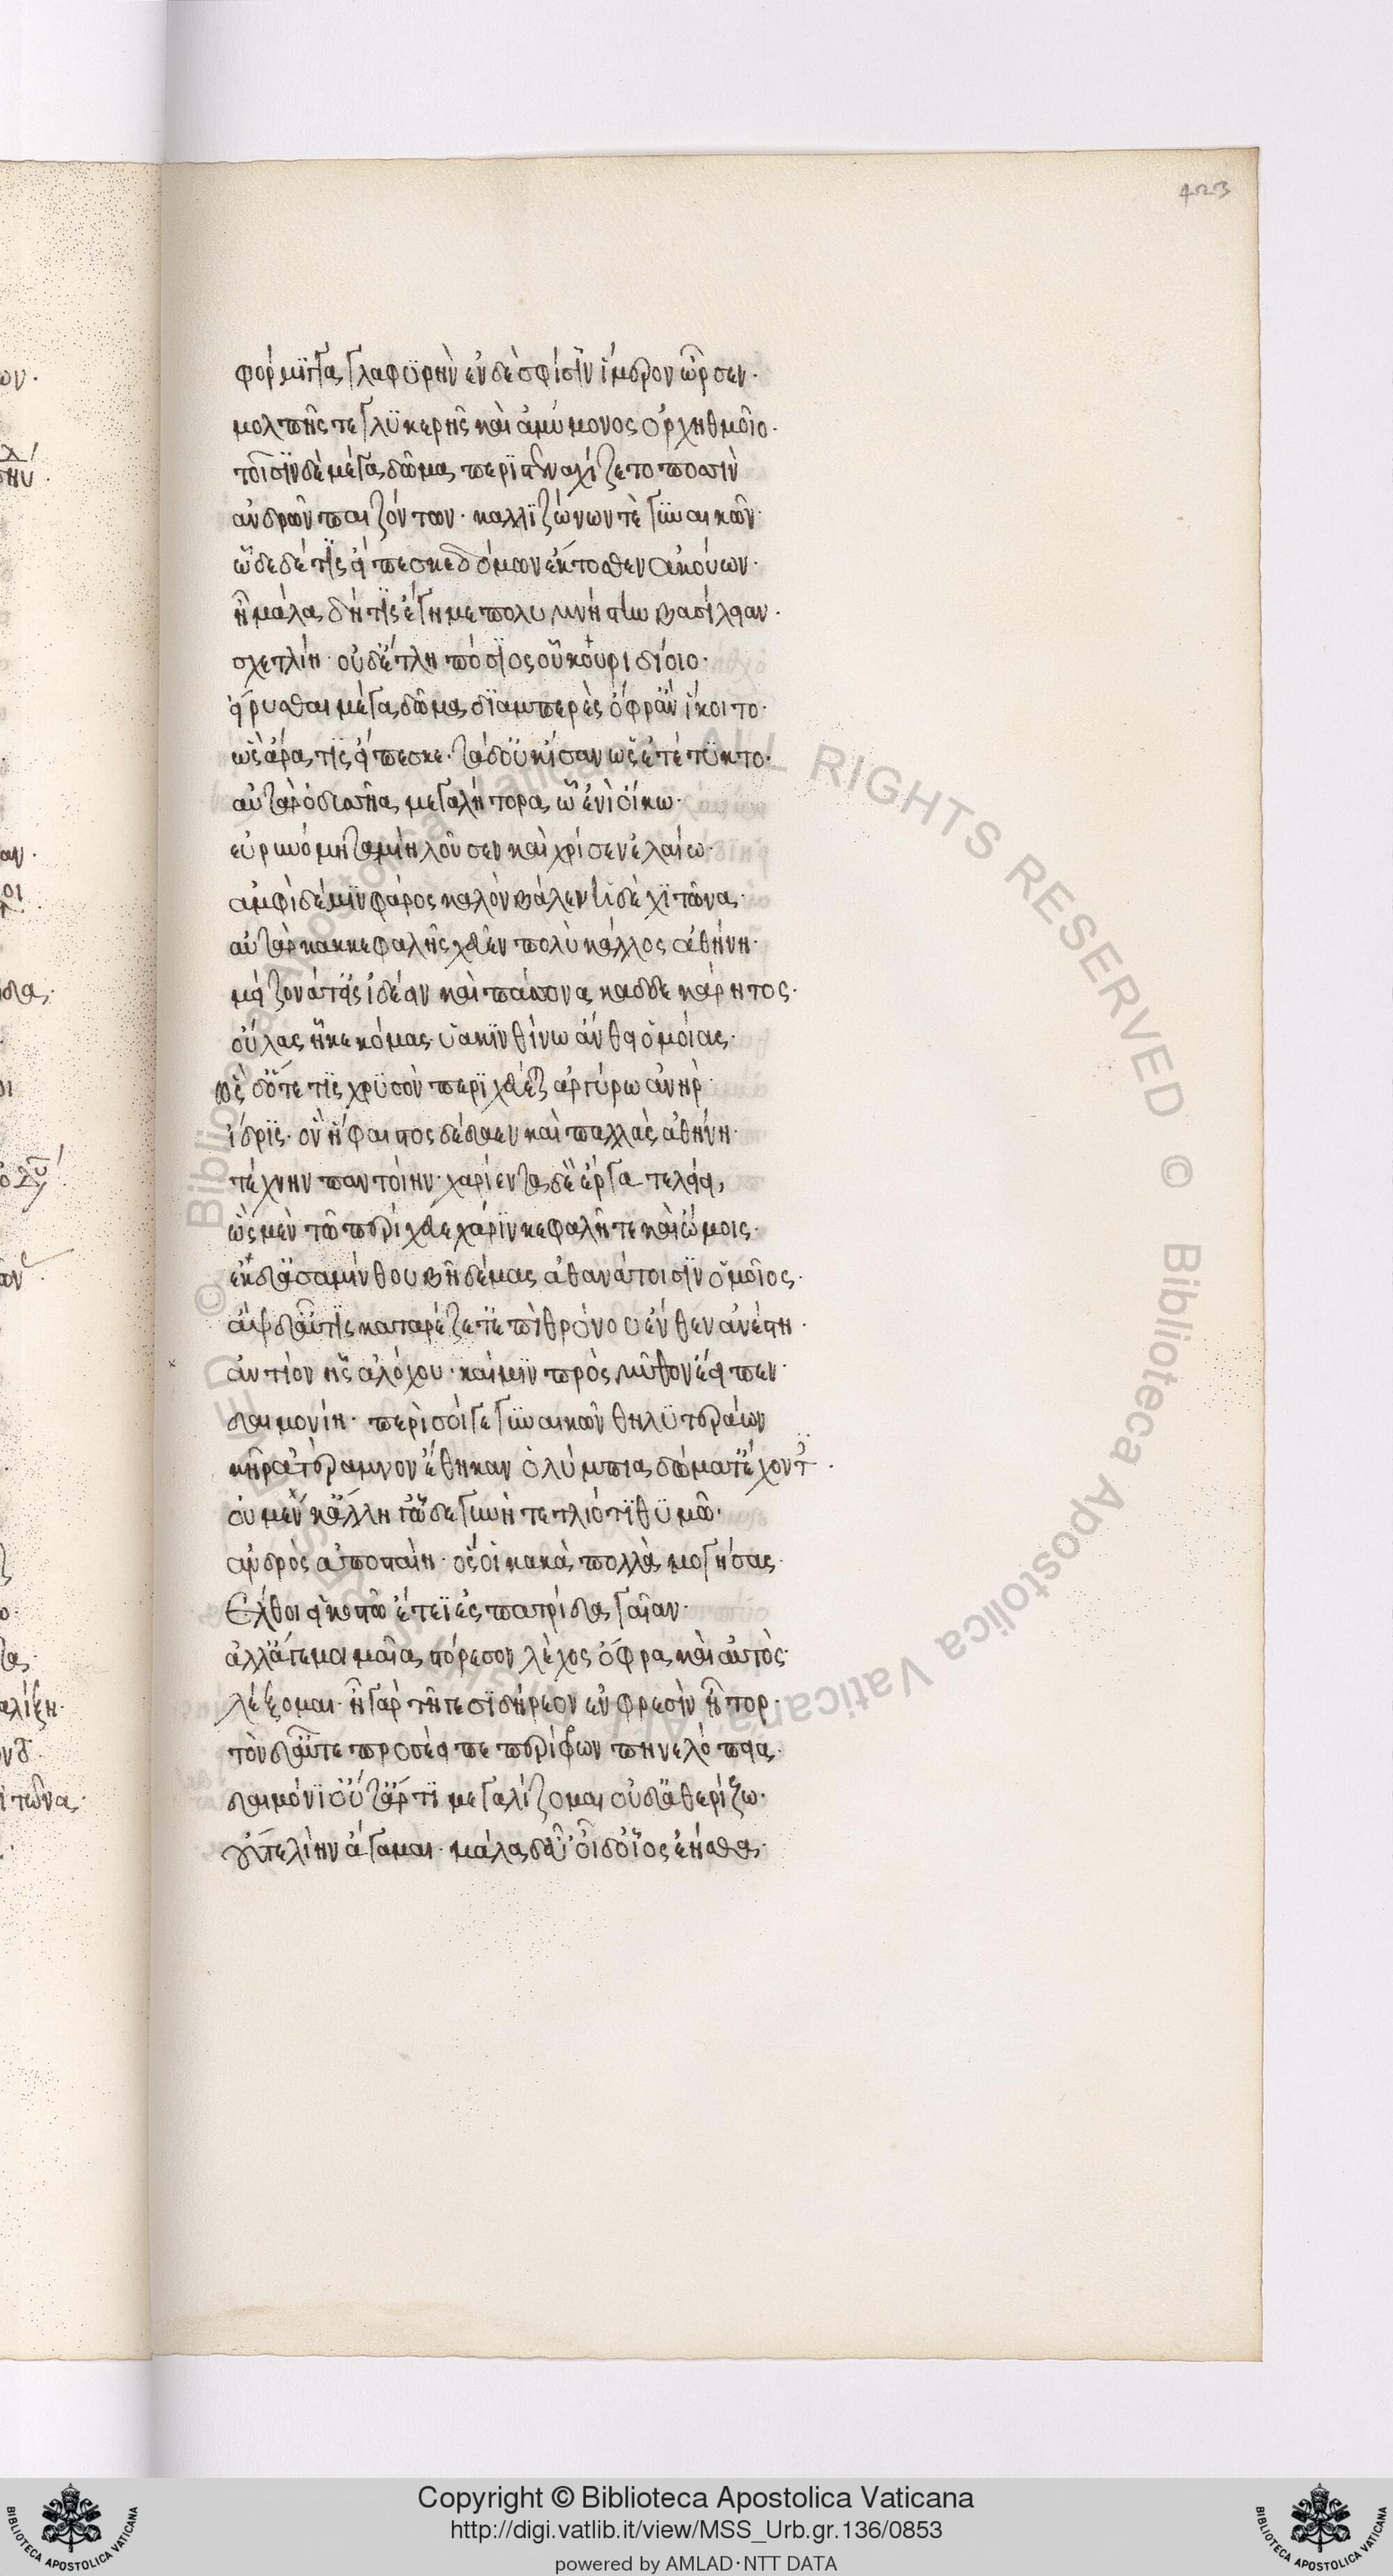 423
φόρμιγγα γλαφϋρὴν ἐν δὲ σφίσϊν ἵμερον ὦρσεν·
μολπῆς τε γλϋκερῆς καὶ ἀμύμονος ὀρχηθμοῖο·
τοῖσϊν δὲ μέγα δῶμα περϊστεναχίζετο ποσσὶν
ἀνδρῶν παιζόντων· καλλϊζώνων τὲ γϋναικῶν·
ὧδε δέ τϊς εἴπεσκε δόμων ἔκτοσθεν ἀκούων·
ἦ μάλα δή τϊς ἔγημε πολυμνήστην βασίλειαν·
σχετλίη· οὐδ' ἔτλη πόσϊος οὗ κουριδίοιο·
εἴρυσθαι μέγα δῶμα δϊαμπερὲς ὄφρ' ἂν ἵκοιτο·
ὣς ἄρα τϊς εἴπεσκε· τὰ δ' οὐκ ἴσαν ὡς ἐτέτϋκτο·
αὐτὰρ ὀδυσσῆα μεγαλήτορα ὧ ἐνὶ οἴκω·
εὐρυνόμη ταμίη λοῦσεν καὶ χρίσεν ἐλαίω·
ἀμφὶ δέ μϊν φάρος καλὸν βάλεν ἠδὲ χϊτῶνα·
αὐτὰρ κακκεφαλῆς χεῦεν πολὺ κάλλος ἀθήνη·
μείζονά τ' εἰσϊδέειν καὶ πάσσονα καδδε κάρητος·
οὔλας ἧκε κόμας ὑακϊνθίνω ἄνθει ὁμοίας·
ὡς δ' ὅτε τϊς χρϋσὸν περϊχεύετ' ἀργύρω ἀνὴρ·
ἴδρϊς· ὃν ἥφαιστος δέδαεν καὶ παλλὰς ἀθήνη·
τέχνην παντοίην· χαρίεντα δὲ ἔργα τελείει,
ὣς μὲν τῶ περίχευε χάρϊν κεφαλῆ τε καὶ ὤμοις·
ἐκ δ' ἀσαμίνθου βῆ δέμας ἀθανάτοισϊν ὁμοῖος·
ἂψ δ' αὖτϊς κατ' ἄρ' ἕζετ' ἐπὶ θρόνου ἔνθεν ἀνέστη·
ἀντίον ἧς ἀλόχου· καί μϊν πρὸς μῦθον ἔειπεν·
δαιμονίη· περὶ σοί γε γϋναικῶν θηλϋτεράων
κῆρ ἀτέραμνον ἔθηκαν ὀλύμπια δώματ' ἔχοντ·
οὐ μέν κ' ἄλλη γ' ὧδε γυνὴ τετληότϊ θϋμῶ·
ἀνδρὸς ἀποσταίη· ὅς οἱ κακὰ πολλὰ μογήσας·
Ἔλθοι εἰκοστῶ ἔτεϊ ἐς πατρίδα γαῖαν·
ἀλλ' ἄγε μοι μαῖα στόρεσον λέχος ὄφρα καὶ αὐτὸς·
λέξομαι· ἦ γὰρ τῆ γε σϊδήρεον ἐν φρεσὶν ἦτορ·
τὸν δ' αὖτε προσέειπε περίφρων πηνελόπεια·
δαιμόνϊ' οὔτ' ἄρ τϊ μεγαλίζομαι οὐδ' ἀθερίζω·
οὔτε λίην ἄγαμαι· μάλα δ' εὖ οἶδ' οἷος ἔησθα·
Copyright © Biblioteca Apostolica Vaticana
http://digi.vatlib.it/view/MSS_Urb.gr.136/0853
powered by AMLAD·NTT DATA